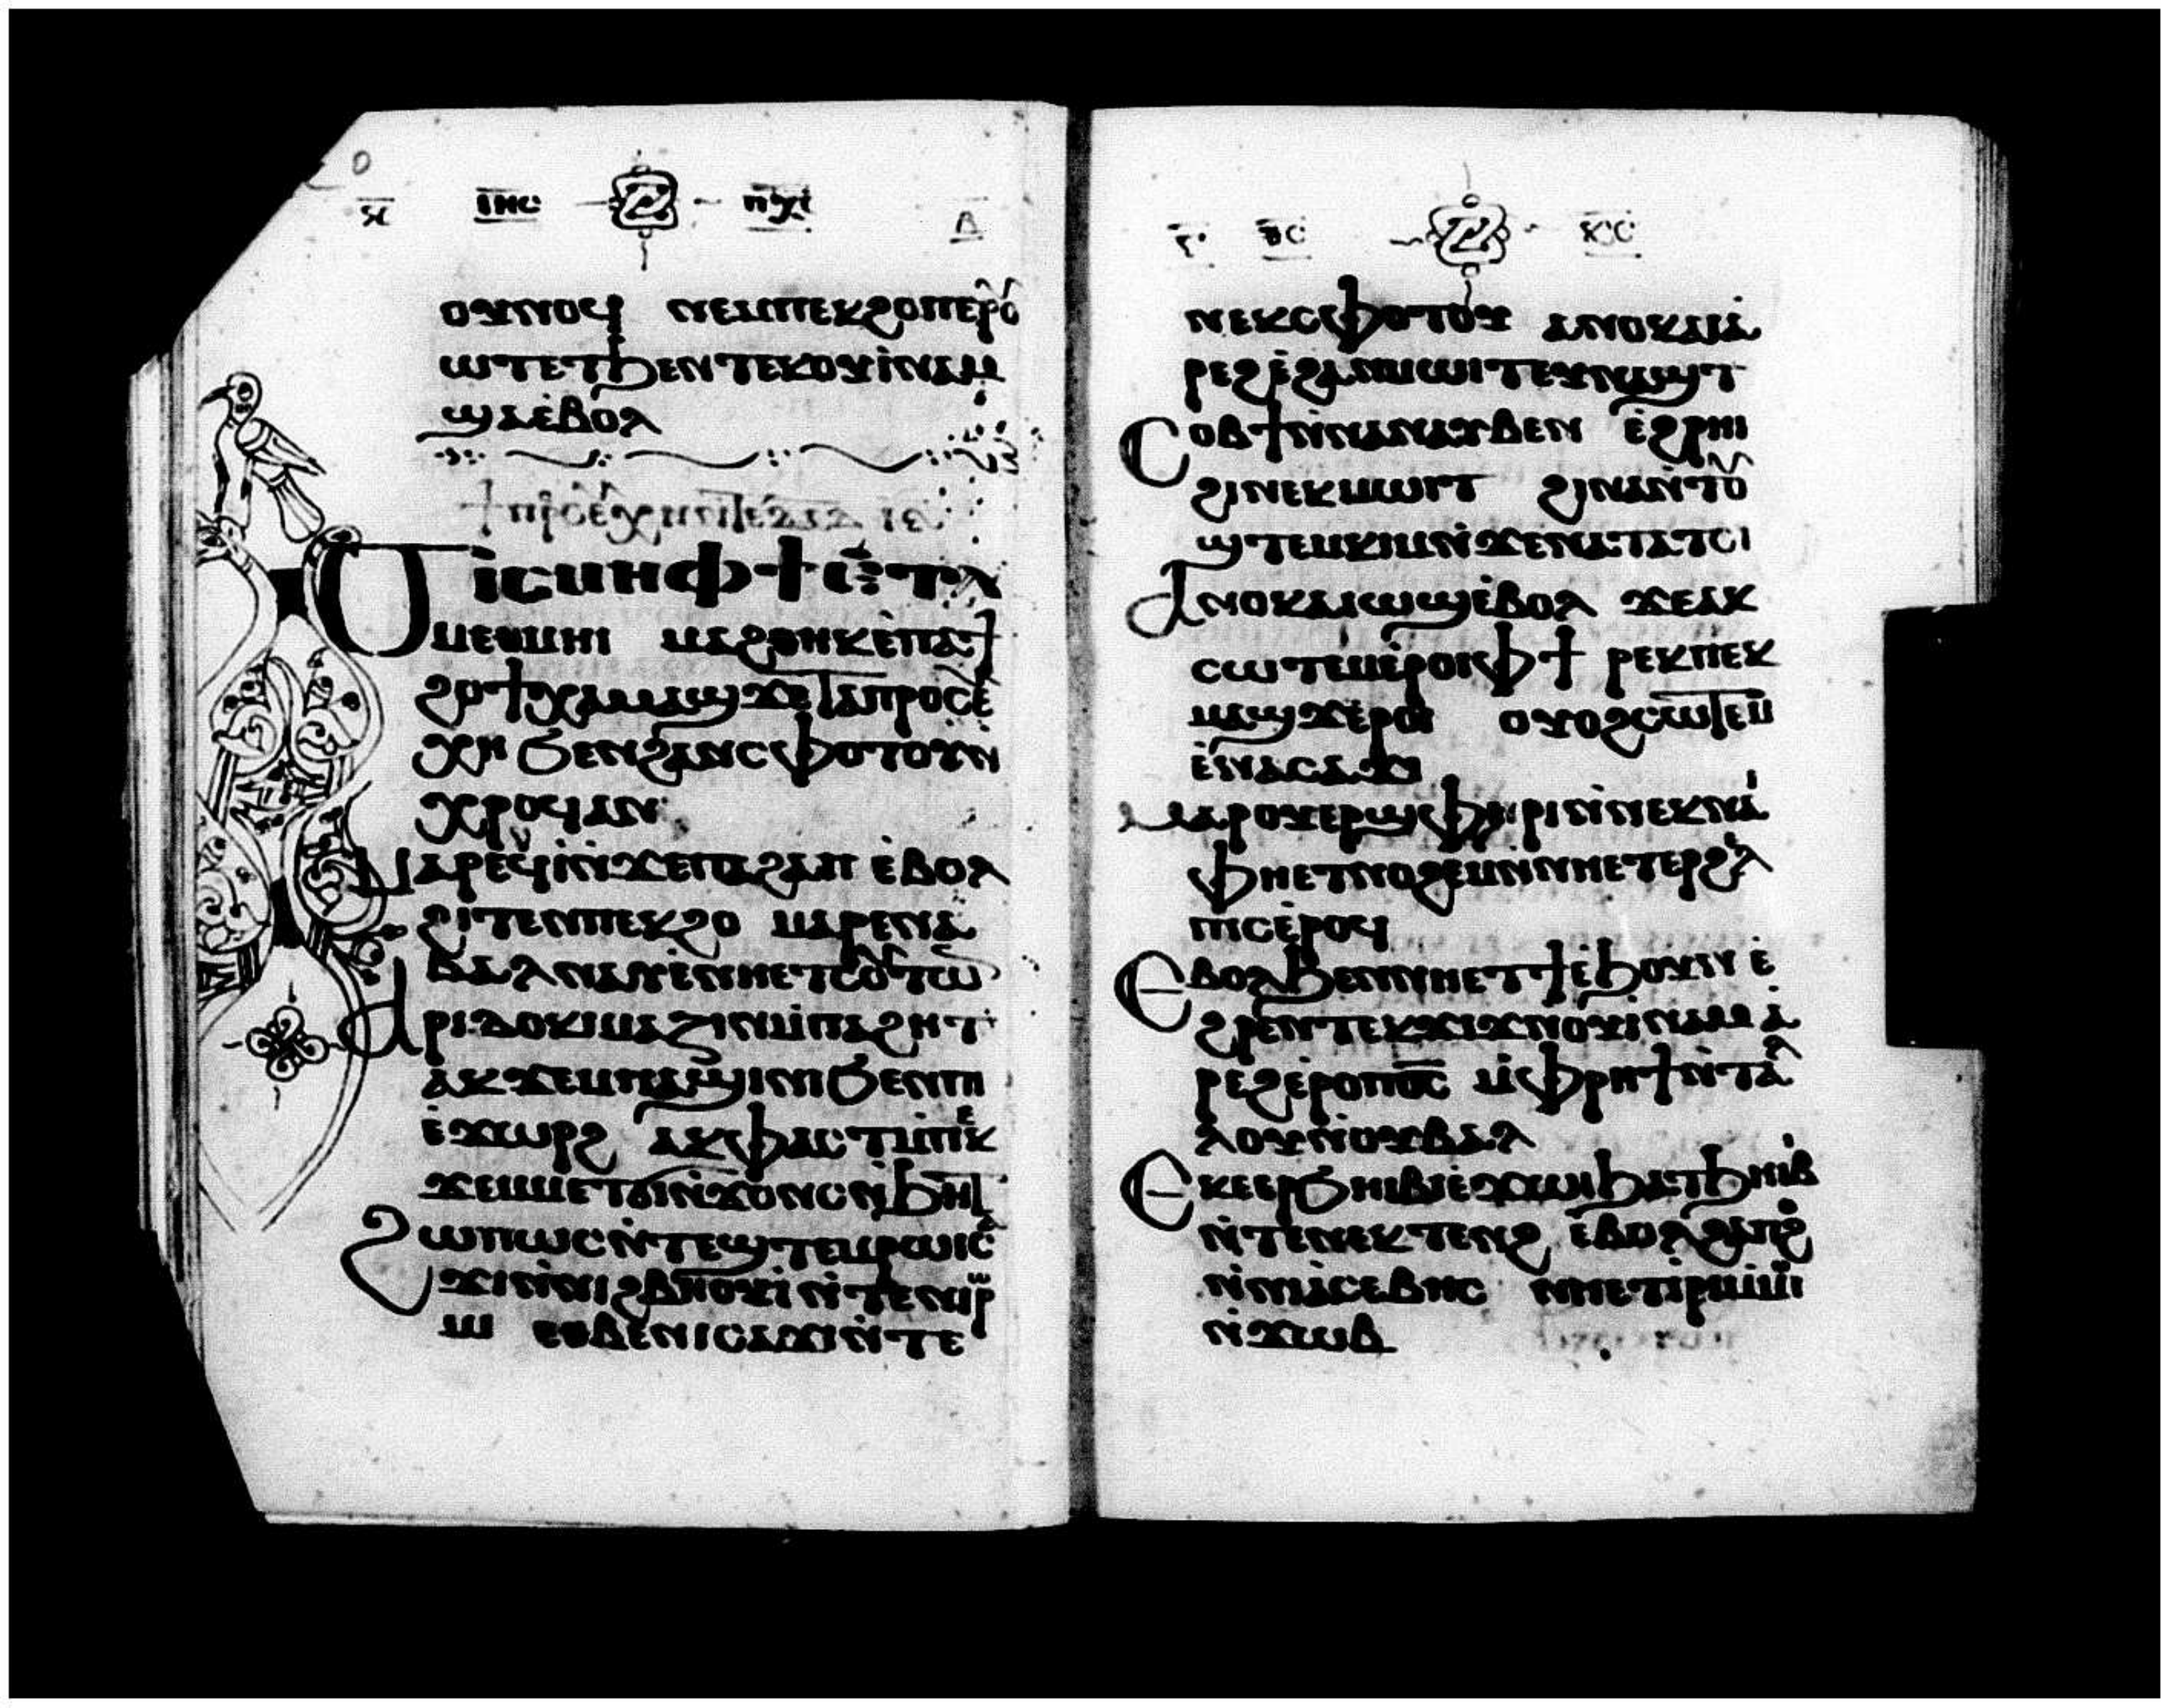 ⲓⲏⲥ ⲡⲭⲥ ⲃ
ⲟⲩⲛⲟϥ ⲛⲉⲙⲡⲉⲕϩⲟⲡⲉⲣⲟ
ⲱⲧⲉⲧϧⲉⲛⲧⲉⲕⲟⲩⲓⲛⲁⲙ
ϣⲁⲉⲃⲟⲗ
ϯⲡⲣⲟⲥⲉⲩⲭⲏⲛⲧⲉⲇⲁⲇ ⲓⲋ
Ϭⲓⲥⲙⲏⲫϯⲉⲧⲁ
ⲙⲉⲑⲙⲏⲓ ⲙⲁϩⲑⲏⲕⲉⲡⲁϯ
ϩⲟϯⲭⲁⲙⲁϣϫⲉⲧⲁⲡⲣⲟⲥⲉ
ⲭⲏ ϭⲉⲛϩⲁⲛⲥⲫⲟⲧⲟⲩⲛ
ⲭⲣⲟϥⲁⲛ
Ⲙⲁⲣⲉϥⲓⲛϫⲉⲡⲁϩⲁⲡ ⲉⲃⲟⲗ
ϩⲓⲧⲉⲛⲡⲉⲕϩⲟ ⲙⲁⲣⲉⲛⲁ
ⲃⲁⲗⲛⲁⲩⲉⲛⲏⲉⲧⲥⲟⲩⲧⲱ
Ⲁⲣⲓⲇⲟⲕⲓⲙⲁⲍⲓⲛⲙⲡⲁϩⲏⲧ
ⲁⲕϫⲉⲙⲡⲁϣⲓⲛⲓ ϭⲉⲛⲡⲓ
ⲉϫⲱⲣϩ ⲁⲕⲫⲁⲥⲧⲙⲡⲉⲕ
ϫⲉⲙⲙⲉⲧϭⲓⲛϫⲟⲛⲥⲛϧⲏⲧ
Ϩⲱⲡⲱⲥⲛⲧⲉϣⲧⲉⲙⲣⲱⲓⲥⲁ
ϫⲓⲛⲛⲓϩⲃⲏⲟⲩⲓⲛⲧⲉⲛⲓⲣ
ⲱ ⲉⲑⲃⲉⲛⲓⲥⲁϫⲓⲛⲧⲉ
ⲅ ⲕⲥ
ⲛⲉⲕⲥⲫⲟⲧⲟⲩ ⲁⲛⲟⲕⲁⲓⲁ
ⲣⲉϩⲉϩⲁⲛⲙⲱⲓⲧⲉⲩⲛⲁϣⲧ
Ⲥⲟⲃϯⲛⲛⲁⲛⲁⲩⲃⲉⲛ ⲉϩⲣⲏⲓ
ϩⲓⲛⲉⲕⲙⲱⲓⲧ ϩⲓⲛⲁⲛⲧⲟⲩ
ϣⲧⲉⲙⲕⲓⲙⲛϫⲉⲛⲁⲧⲁⲧⲥⲓ
Ⲁⲛⲟⲕⲁⲓⲱϣⲉⲃⲟⲗ ϫⲉⲁⲕ
ⲥⲱⲧⲉⲙⲉⲣⲟⲓⲫϯ ⲣⲉⲕⲡⲉⲕ
ⲙⲁϣϫⲉⲣⲟⲓ ⲟⲩⲟϩⲥⲱⲧⲉⲙ
ⲉⲛⲁⲥⲁϫⲓ
Ⲙⲁⲣⲟⲩⲉⲣϣⲫⲏⲣⲓⲛⲛⲉⲕⲛⲁⲓ
ⲫⲏⲉⲧⲛⲟϩⲉⲙⲛⲛⲏⲉⲧⲉⲣϩⲉⲗ
ⲡⲓⲥⲉⲣⲟϥ
Ⲉⲃⲟⲗϧⲉⲛⲛⲏⲉⲧϯⲉϧⲟⲩⲛ ⲉ
ϩⲣⲉⲛⲧⲉⲕϫⲓϫⲛⲟⲩⲓⲛⲁⲙ ⲁ
ⲣⲉϩⲉⲣⲟⲓⲡⲟⲥ ⲙⲫⲣⲏϯⲛⲧⲁ
ⲗⲟⲩⲛⲟⲩⲃⲁⲗ
Ⲉⲕⲉⲉⲣϭⲏⲓⲃⲓⲉϫⲱⲓϧⲁⲧϧⲏⲓⲃⲓ
ⲛⲧⲉⲛⲉⲕⲧⲉⲛϩ ⲉⲃⲟⲗϩⲁⲡϩⲟ
ⲛⲛⲓⲁⲥⲉⲃⲏⲥ ⲛⲏⲉⲧⲓⲣⲓⲙⲙⲟⲓ
ⲛϫⲱⲃ